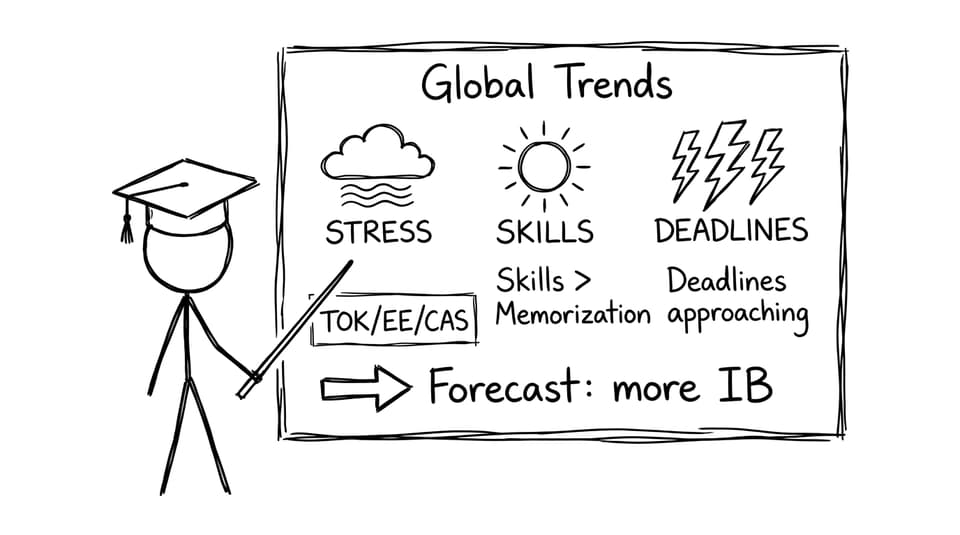 Global Trends
STRESS
SKILLS
DEADLINES
TOK/EE/CAS
Skills >
Memorization
Deadlines
approaching
Forecast: more IB